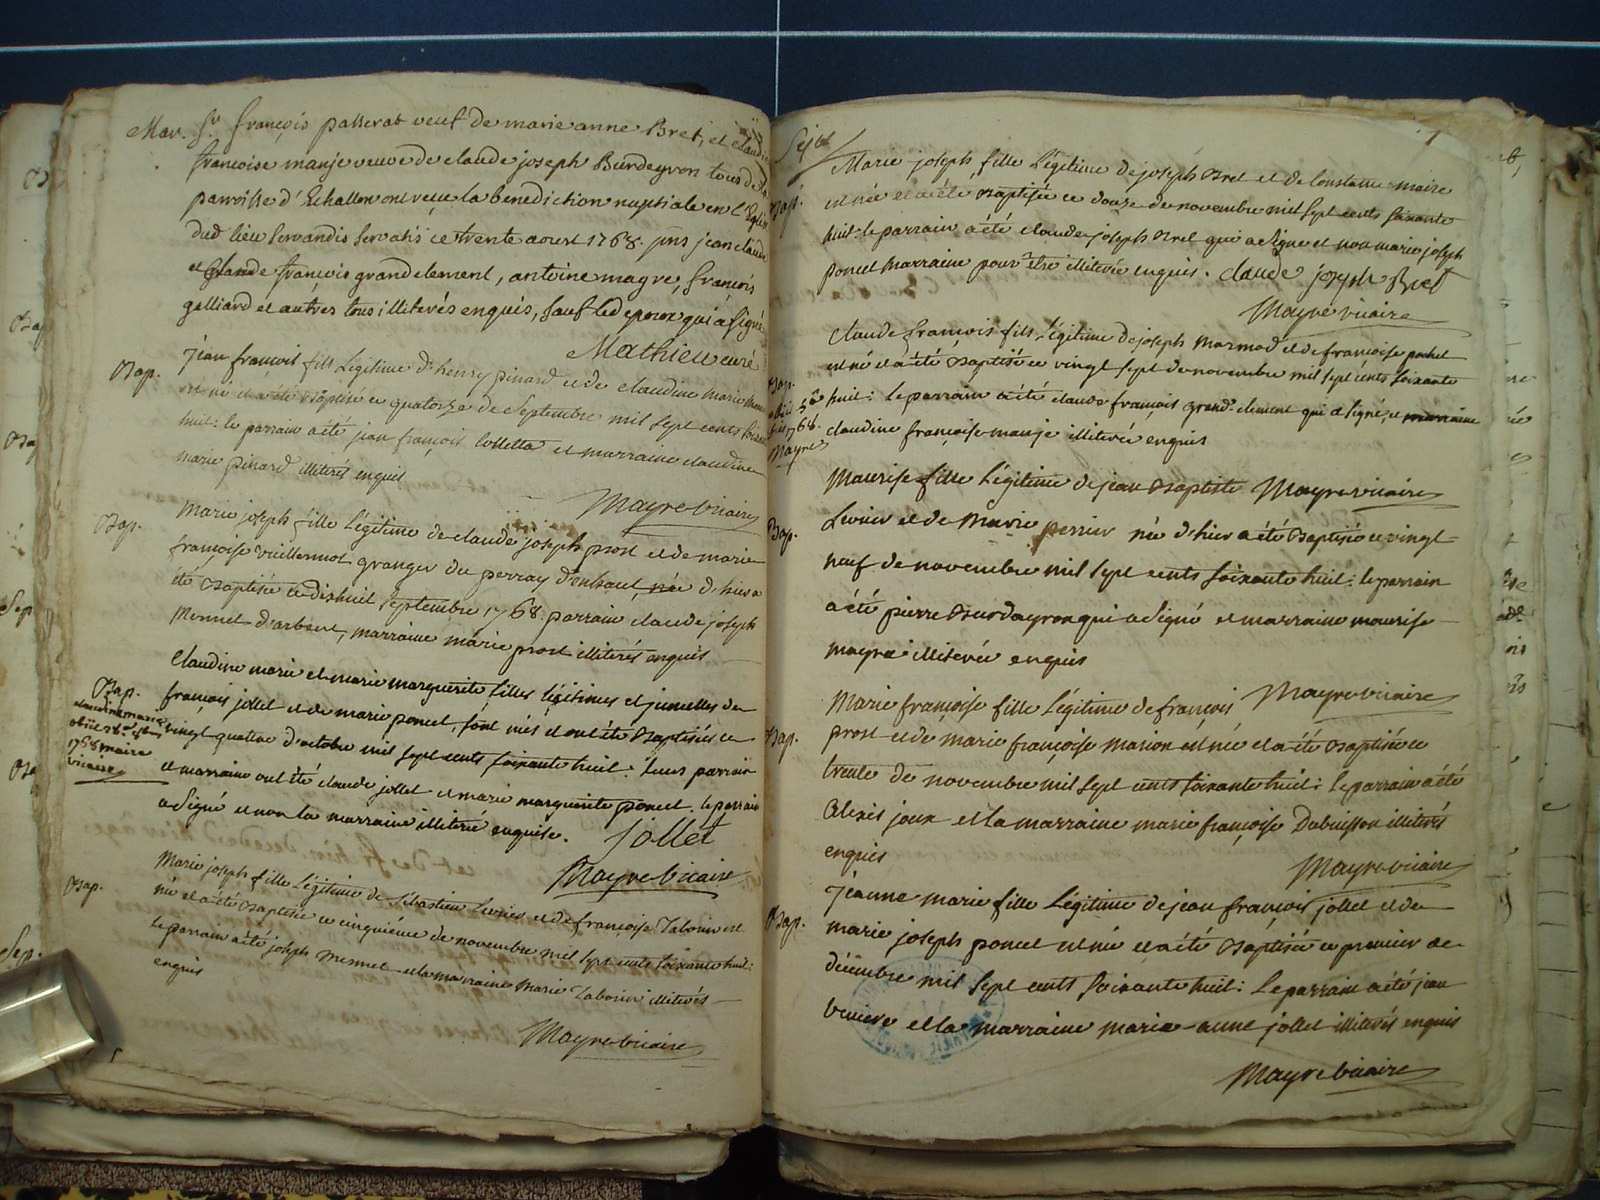 Mar. Sr. françois passerat veuf de marie anne Bret, et claudine
francoise manje veuve de claude joseph Burdeyron tous de la
parroisse d'Echallon ont reçu la benediction nuptiale en l'Eglise
dud lieu servandis servatis ce trente aoust 1768. pnts jean claude
et Claude françois grandclement, antoine magre, françois
galliard et autres tous illiterés enquis, sauf led epoux qui a signé
Mathieu curé
Bap.
jean francois fils Légitime d'henry pinard et de claudine marie
est né et a été Baptisé ce quatorze de Septembre mil sept cents soixante
huit: le parrain a été jean françois Colletta et marraine claudine
marie pinard illiterés enquis
Mayre vicaire
Bap.
Marie joseph fille Légitime de claude joseph prost et de marie
françoise vuillermot granger du perray d'enhaut, née d'hier a
été Baptisée ce dixhuit septembre 1768. parrain claude joseph
Monnet d'arbent, marraine marie prost illiterés enquis
Bap.
claudine marie
obiit 28e 8bre
1768 maire
vicaire
Claudine marie et marie marguerite filles légitimes et jumelles de
francois jollet et de marie poncet, sont nées et ont été Baptisées ce
vingt quatre d'octobre mil sept cents soixante huit: leurs parrain
et marraine ont été claude jollet et marie marguerite poncet. le parrain
a signé et non la marraine illiterée enquise. Jollet
Mayre vicaire
Bap.
Marie joseph fille Légitime de Sébastien Livries et de françoise Tabouret est
née et a été Baptisée ce cinquième de novembre mil sept cents soixante huit:
le parrain a été joseph Monnet et la marraine Marie Tabouret illiterés
enquis
Mayre vicaire
Sept
Bap.
Marie joseph fille Légitime de joseph Bret et de Constance maire
est née et a été Baptisée ce douze de novembre mil sept cents soixante
huit: le parrain a été claude joseph Bret qui a signé et non marie joseph
poncet marraine pour être illiterée enquis. claude joseph Bret
Mayre vicaire
Bap.
obiit 5e
1768.
Mayre
Claude françois fils Légitime de joseph Marmod et de françoise pochet
est né et a été Baptisé ce vingt sept de novembre mil sept cents soixante
huit: le parrain a été claude françois grand-clement qui a signé, et marraine
claudine françoise manje illiterée enquis
Mayre vicaire
Bap.
Maurise fille Légitime de jean Baptiste
Livries et de Marie perrier née d'hier a été Baptisée ce vingt
neuf de novembre mil sept cents soixante huit: le parrain
a été pierre Burdayron qui a signé et marraine maurise
mayre illiterée enquis
Mayre vicaire
Bap.
Marie françoise fille Légitime de françois
prost et de marie françoise Marion est née et a été Baptisée ce
trente de novembre mil sept cents soixante huit: le parrain a été
Alexis joux et la marraine marie françoise Dubuisson illiterés
enquis
Mayre vicaire
Bap.
Jeanne marie fille Légitime de jean françois jollet et de
marie joseph poncet est née et a été Baptisée ce premier de
décembre mil sept cents soixante huit: Le parrain a été jean
et la marraine marie-anne jollet illiterés enquis
Mayre vicaire